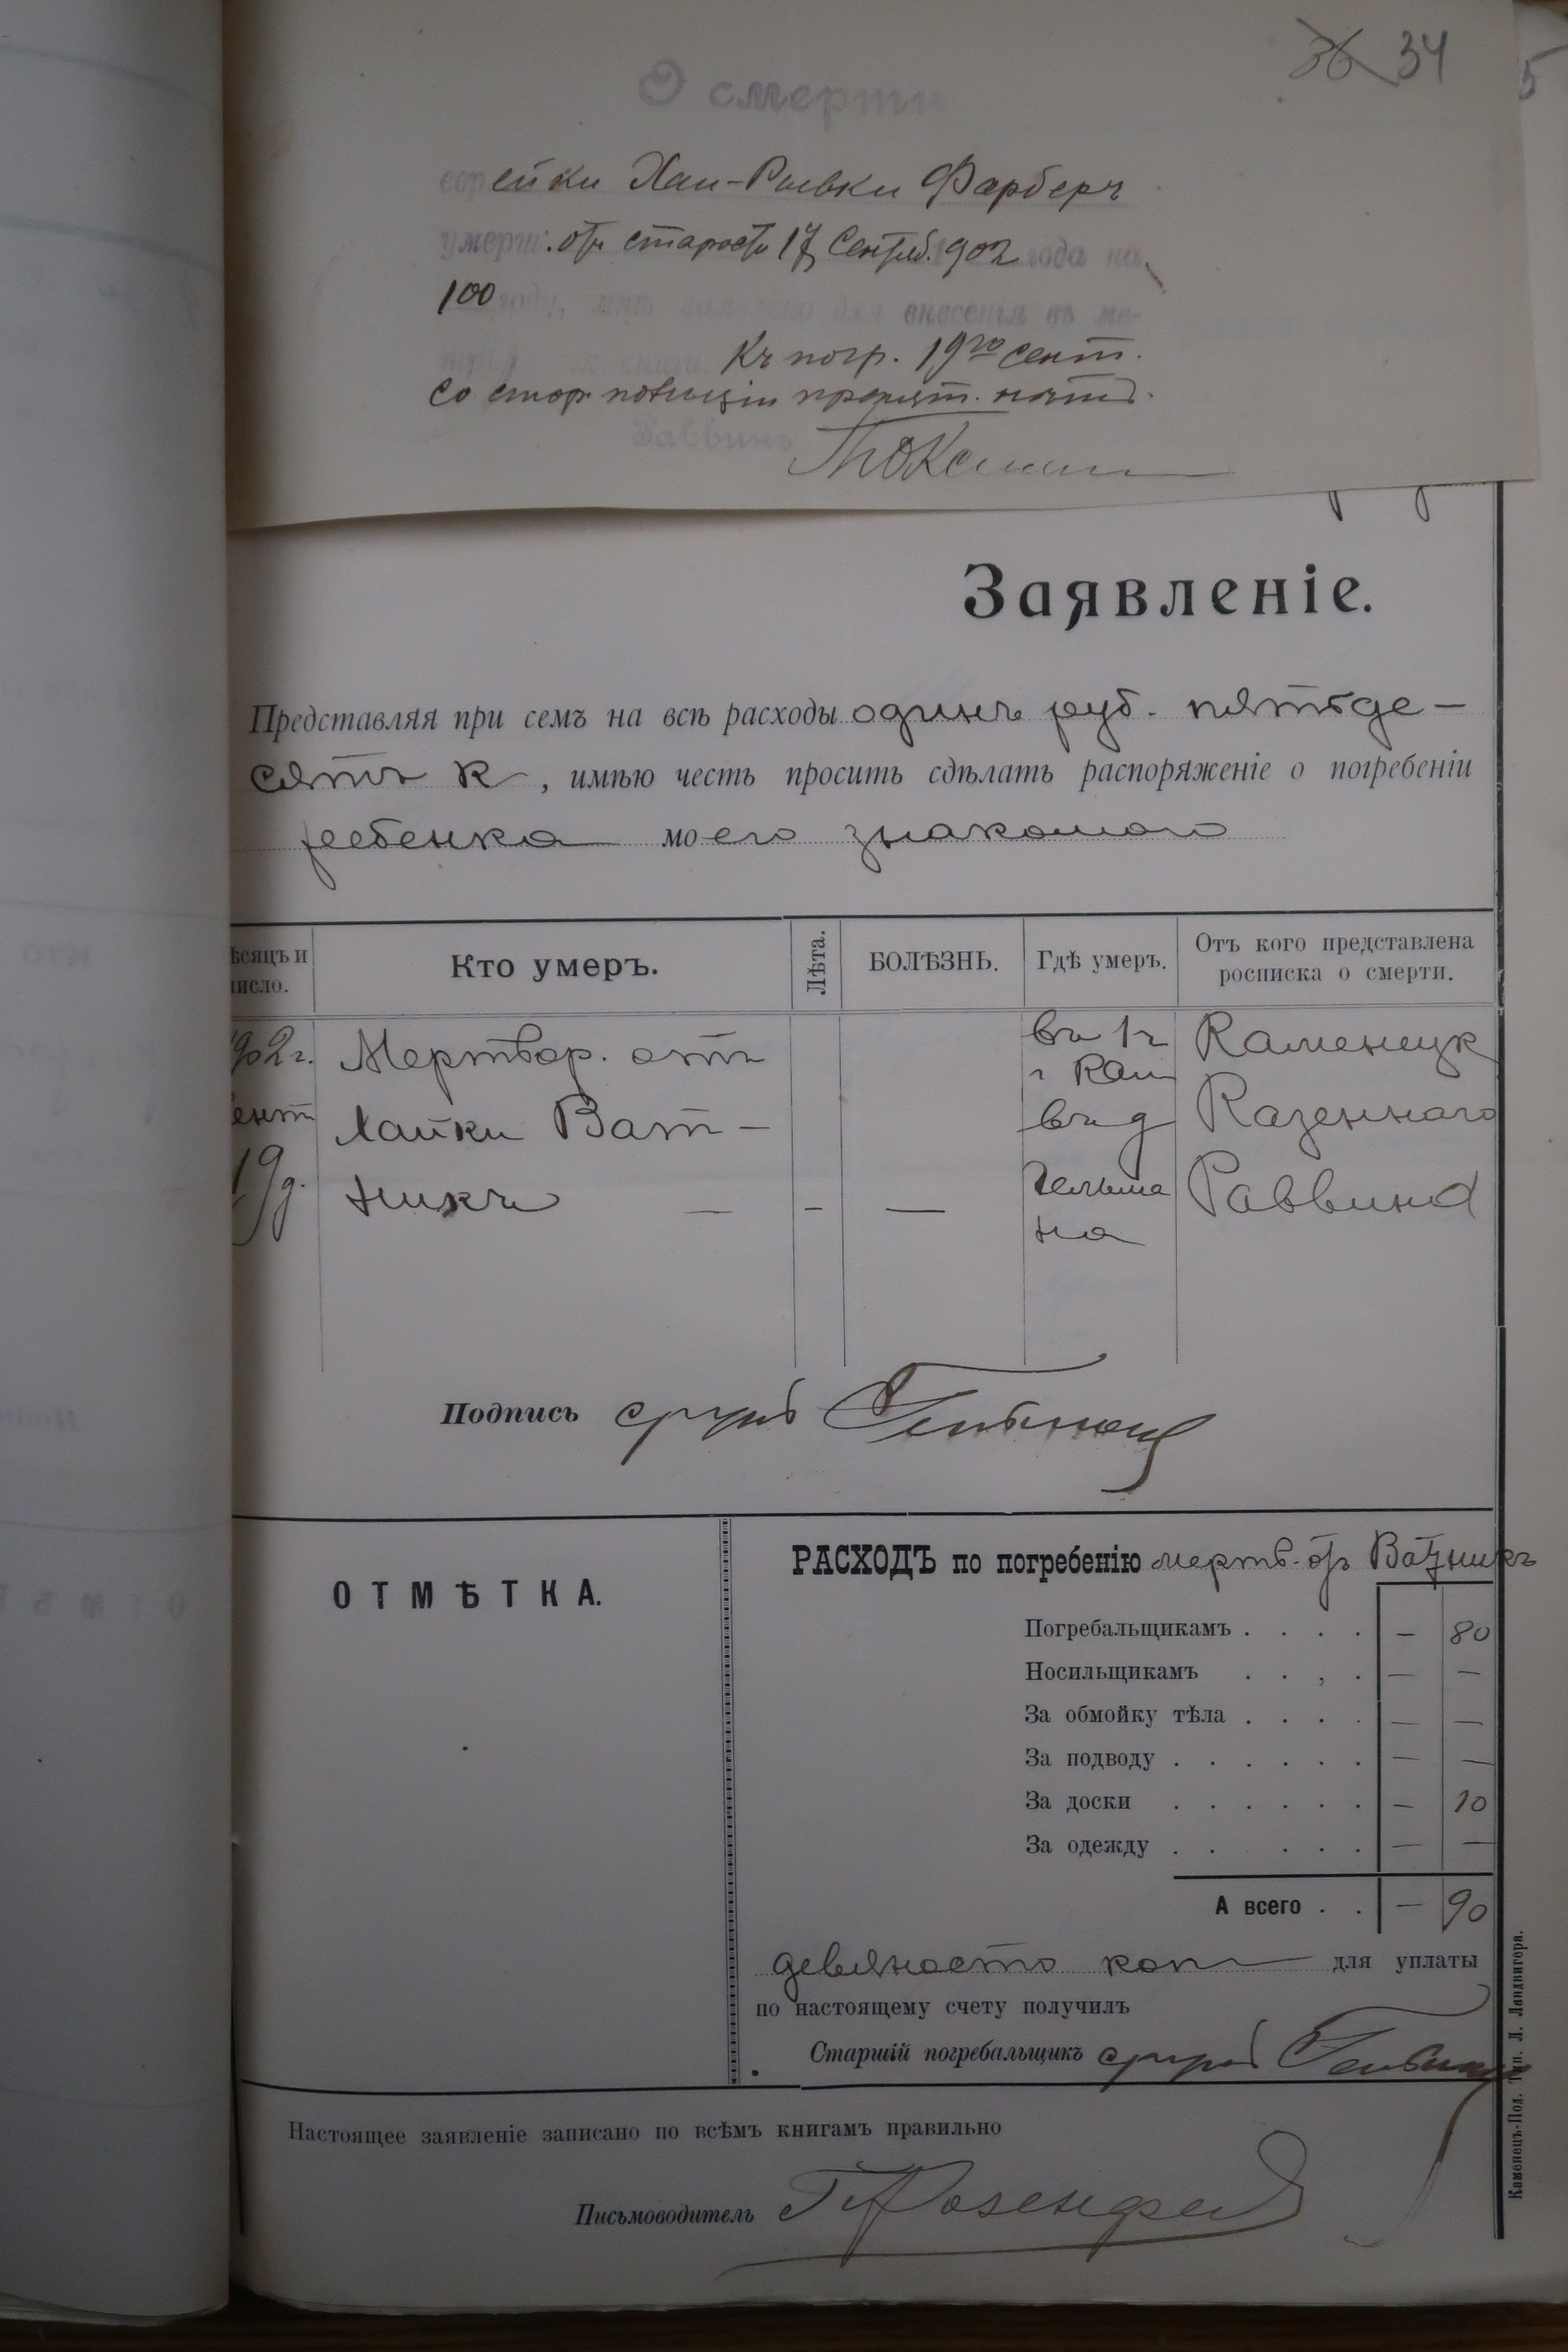 36 34
О смерти
еврейки Хаи-Рывки Фарберъ
умерш. отъ старости 17 Сентяб. 902 года на
100 году, мнѣ заявлено для внесенія въ ме-
книги. Къ погр. 19го сент.
со стор. полиціи препят. нѣтъ.
Раввинъ
Заявленіе.
Представляя при семъ на всѣ расходы одинъ руб. пятьде-
сятъ к, имѣю честь просить сдѣлать распоряженіе о погребеніи
ребенка моего знакомаго
ѣсяцъ и
исло.
Кто умеръ.
Лѣта.
БОЛѢЗНЬ.
Гдѣ умеръ.
Отъ кого представлена
росписка о смерти.
902 г.
Сент
19 д.
Мертвор. отъ
Хайки Ват-
никъ — - —
въ 1 ч
г Кам
въ д
Гельма
на
Каменецк
Казеннаго
Раввина
Подпись
ОТМѢТКА.
РАСХОДЪ по погребенію мертв. отъ Ватникъ
Погребальщикамъ . . . . — 80
Носильщикамъ . . , . — —
За обмойку тѣла . . . . — —
За подводу . . . . . . — —
За доски . . . . . . — 10
За одежду . . . . . . — —
А всего . . — 90
девяносто коп для уплаты
по настоящему счету получилъ
Старшій погребальщикъ
Настоящее заявленіе записано по всѣмъ книгамъ правильно
Письмоводитель Розенфел
Каменецъ-Под. Тип. Л. Ландвигера.